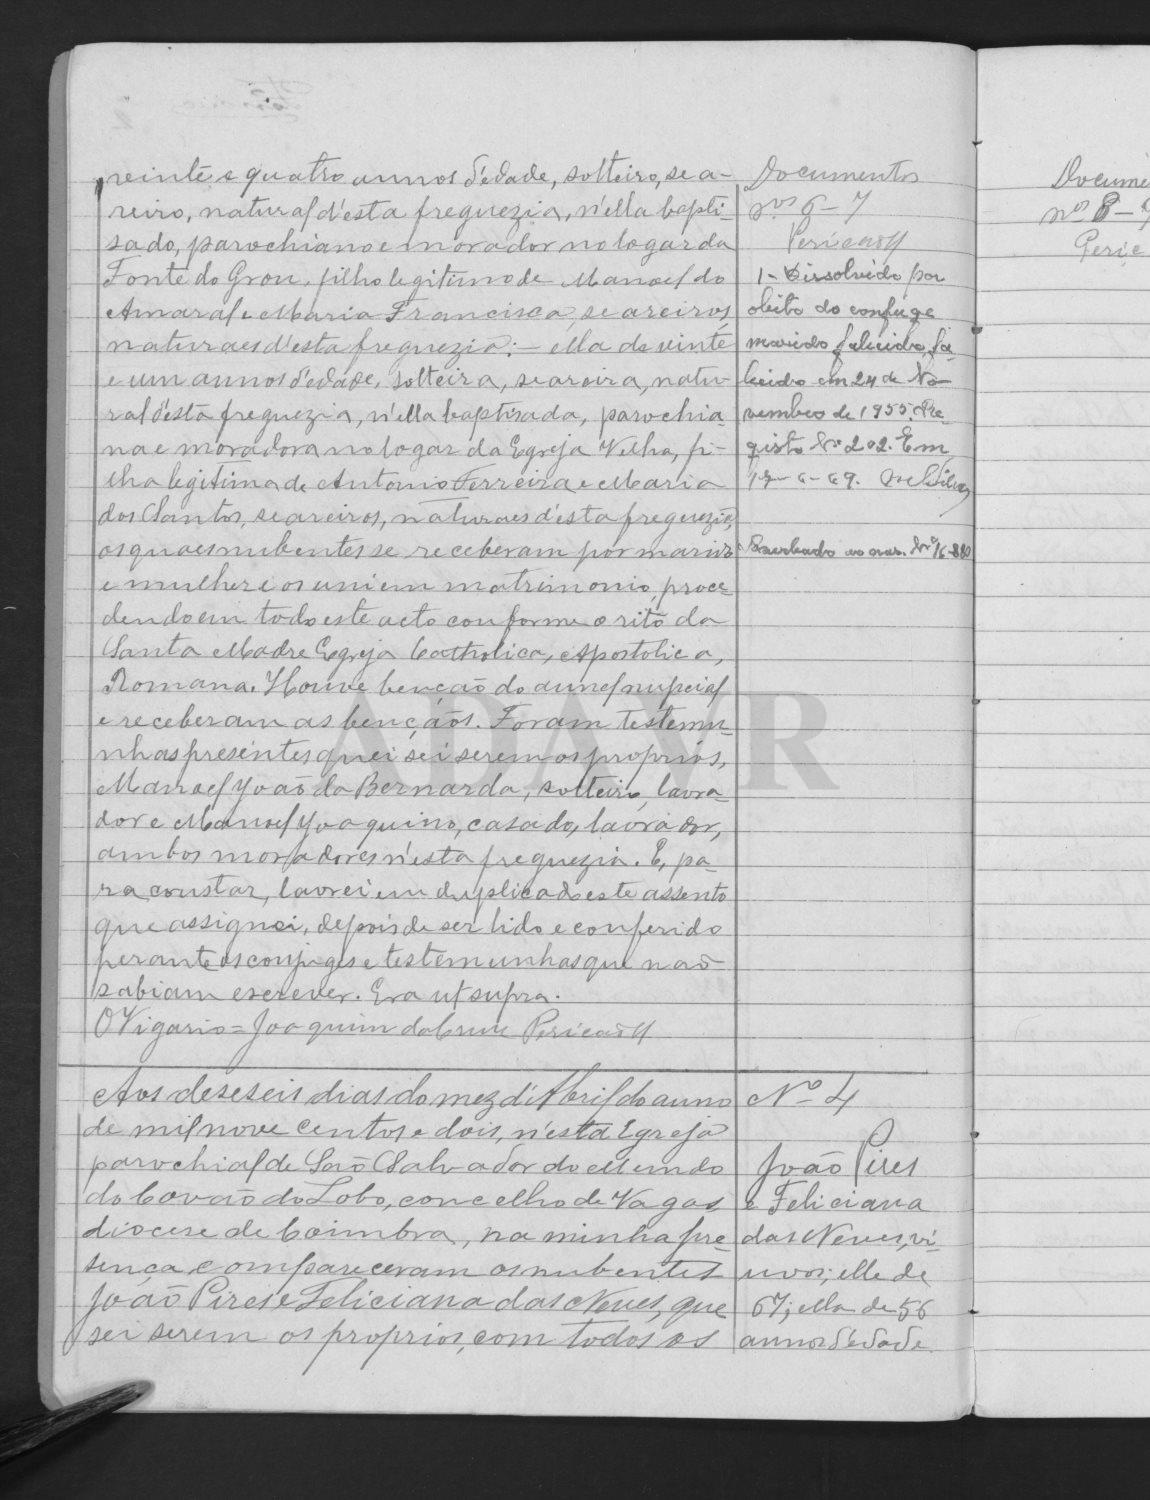 veinte e quatro annos d'edade, solteiro, sea-
reiro, natural d'esta freguezia, n'ella bapti-
sado, parochiano e morador no logar da
Fonte do Grou, filho legitimo de Manoel do
Amaral e Maria Francisca, seareiros,
naturaes d'esta freguezia: - ella de vinte
e um annos d'edade, solteira, seareira, natu-
ral d'esta freguezia, n'ella baptizada, parochia-
na e moradora no logar da Egreja Velha, fi-
lha legitima de Antonio Ferreira e Maria
dos Santos, seareiros, naturaes d'esta freguezia,
os quaes nubentes se receberam por marido
e mulher e os uni em matrimonio, proce-
dendo em todo este acto conforme o rito da
Santa Madre Egreja Catholica, Apostolica,
Romana. Houve benção do annel nupcial
e receberam as bençãos. Foram testemu-
nhas presentes que sei serem os proprios,
Manoel João da Bernarda, solteiro, lavra-
dor e Manoel Joaquino, casado, lavrador,
ambos moradores n'esta freguezia. E, pa-
ra constar, lavrei em duplicado este assento
que assignei, depois de ser lido e conferido
perante os conjuges e testemunhas que não
sabiam escrever. Era ut supra.
O Vigario = Joaquim da Cruz Pericão
Documentos
nos 6-7
Pericão
1- Dissolvido por
obito do conjuge
marido, fa-
lecido em 24 de No-
vembro de 1955. Re-
gisto No 202. Em
17-6-69.
Averbado ao
Aos deseseis dias do mez d'Abril do anno
de mil nove centos e dois, n'esta Egreja
parochial de São Salvador do Mundo
do Covão do Lobo, concelho de Vagos,
diocese de Coimbra, na minha pre-
sença compareceram os nubentes
João Pires e Feliciana das Neves, que
sei serem os proprios, com todos os
No 4
João Pires
e Feliciana
das Neves, vi-
uvos; elle de
67; ella de 56
annos d'edade.
Docume
nos 8-9
Peric
ADAVR